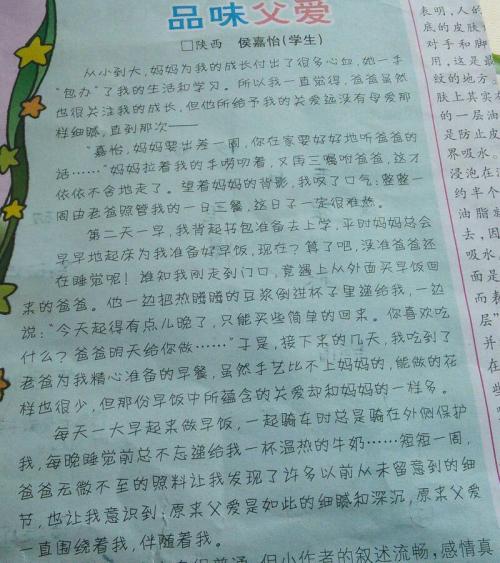 品味父爱
□陕西 侯嘉怡(学生)
从小到大,妈妈为我的成长付出了很多心血,她一手
“包办”了我的生活和学习。所以我一直觉得,爸爸虽然
也很关注我的成长,但他所给予我的关爱远没有母爱那
样细腻,直到那次——
“嘉怡,妈妈要出差一周,你在家要好好地听爸爸的
话……”妈妈拉着我的手唠叨着,又再三嘱咐爸爸,这才
依依不舍地走了。望着妈妈的背影,我叹了口气:整整一
周由老爸照管我的一日三餐,这日子一定很难熬。
第二天一早,我背起书包准备去上学,平时妈妈总会
早早地起床为我准备好早饭,现在?算了吧,没准爸爸还
在睡觉呢!谁知我刚走到门口,竟遇上从外面买早饭回
来的爸爸。他一边把热腾腾的豆浆倒进杯子里递给我,一边
说:“今天起得有点儿晚了,只能买些简单的回来。你喜欢吃
什么?爸爸明天给你做……”于是,接下来的几天,我吃到了
老爸为我精心准备的早餐,虽然手艺比不上妈妈的,能做的花
样也很少,但那份早饭中所蕴含的关爱却和妈妈的一样多。
每天一大早起来做早饭,一起骑车时总是骑在外侧保护
我,每晚睡觉前总不忘递给我一杯温热的牛奶……短短一周,
爸爸无微不至的照料让我发现了许多以前从未留意到的细
节,也让我意识到:原来父爱是如此的细腻和深沉,原来父爱
一直围绕着我,伴随着我。
但小作者的叙述流畅,感情真
表明,人的
底的皮肤
对手和脚
用,这是最
纹的地方。
肤上其实
的一层油
是防止皮
界吸水。
浸泡在
约半个
油脂
去,因
吸水,
面是
而表
层”
并
在